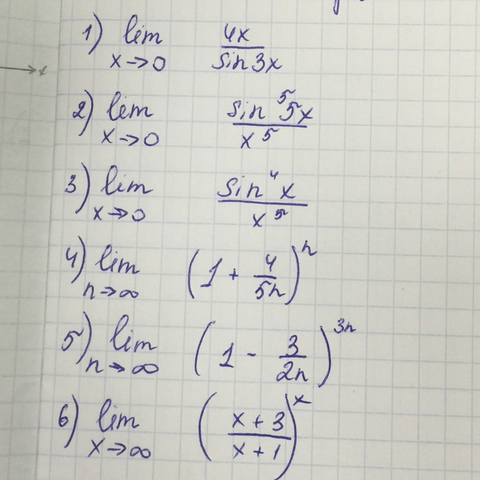 1) lim x→0 4x/sin3x
2) lim x→0 sin⁵5x/x⁵
3) lim x→0 sin⁴x/x⁵
4) lim n→∞ (1 + 4/5n)ⁿ
5) lim n→∞ (1 - 3/2n)³ⁿ
6) lim x→∞ (x+3/x+1)ˣ